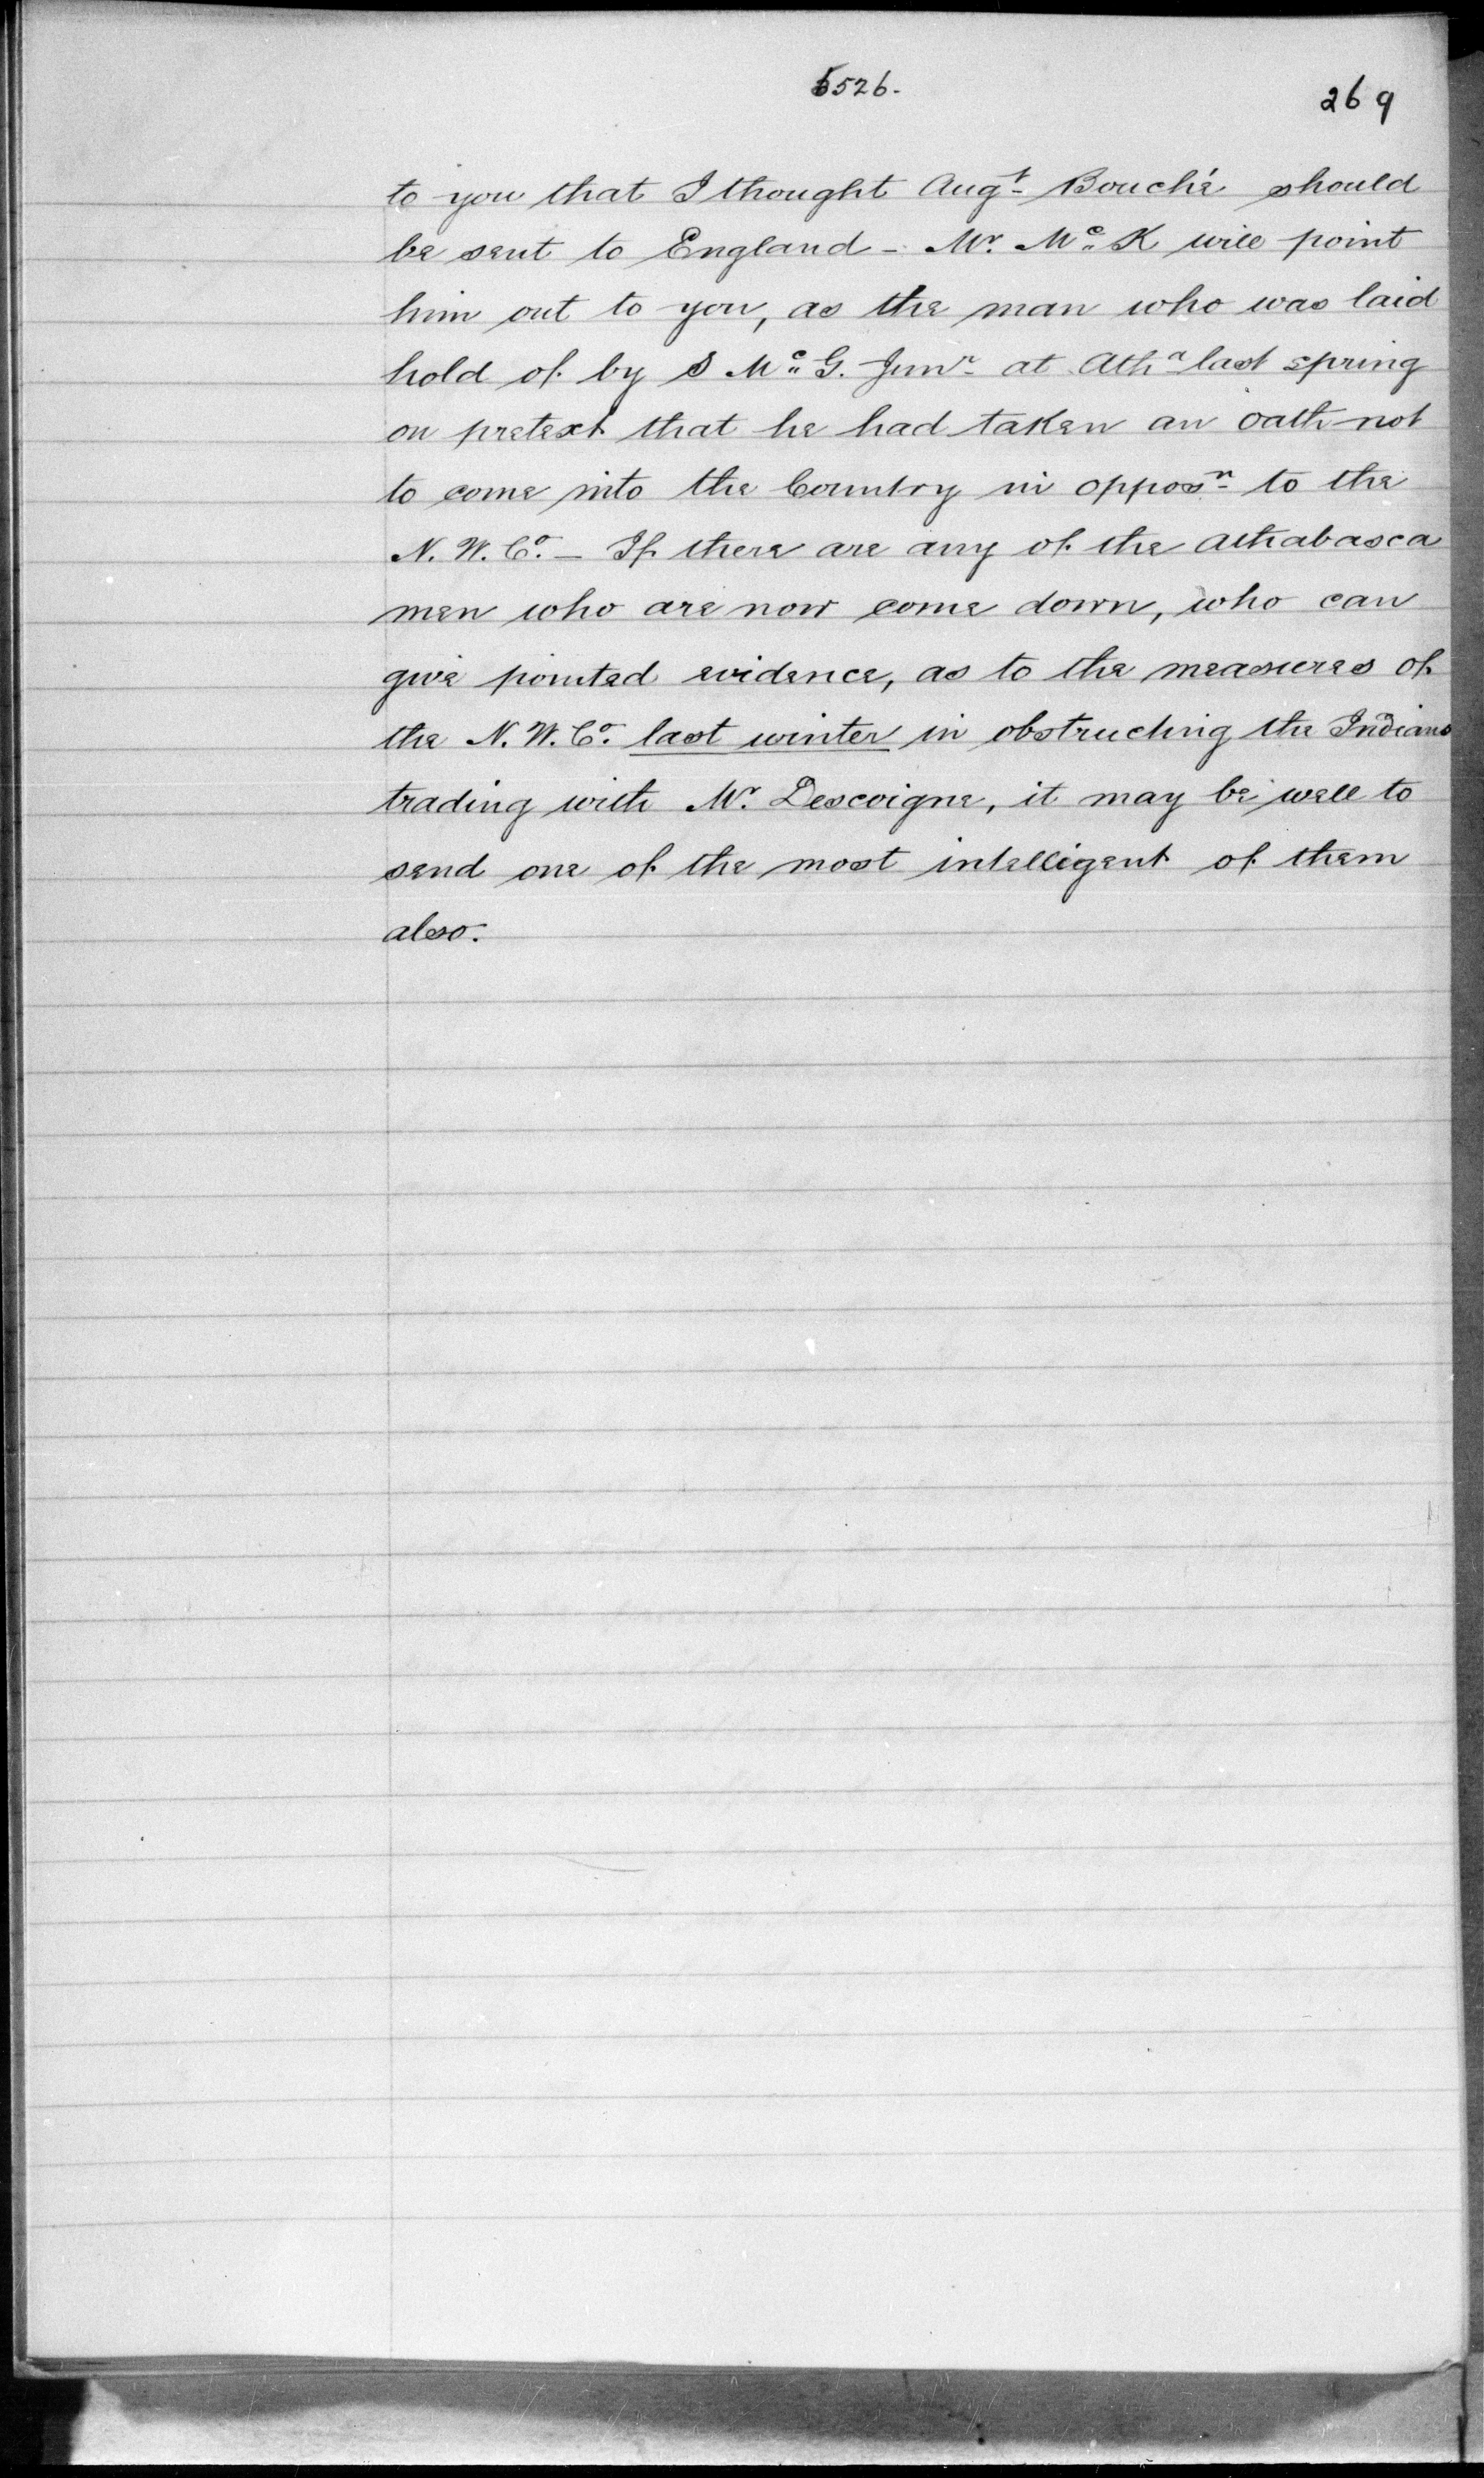 5526.
269
to you that I thought Augt. Bouché should
be sent to England - Mr. Mc. K will point
him out to you, as the man who was laid
hold of by S Mc. G. Junr. at Atha last spring
on pretext that he had taken an oath not
to come into the Country in opposn. to the
N. W. Co. - If there are any of the Athabasca
men who are now come down, who can
give pointed evidence, as to the measures of
the N. W. Co. last winter in obstructing the Indians
trading with Mr. Descoigne, it may be well to
send one of the most intelligent of them
also.